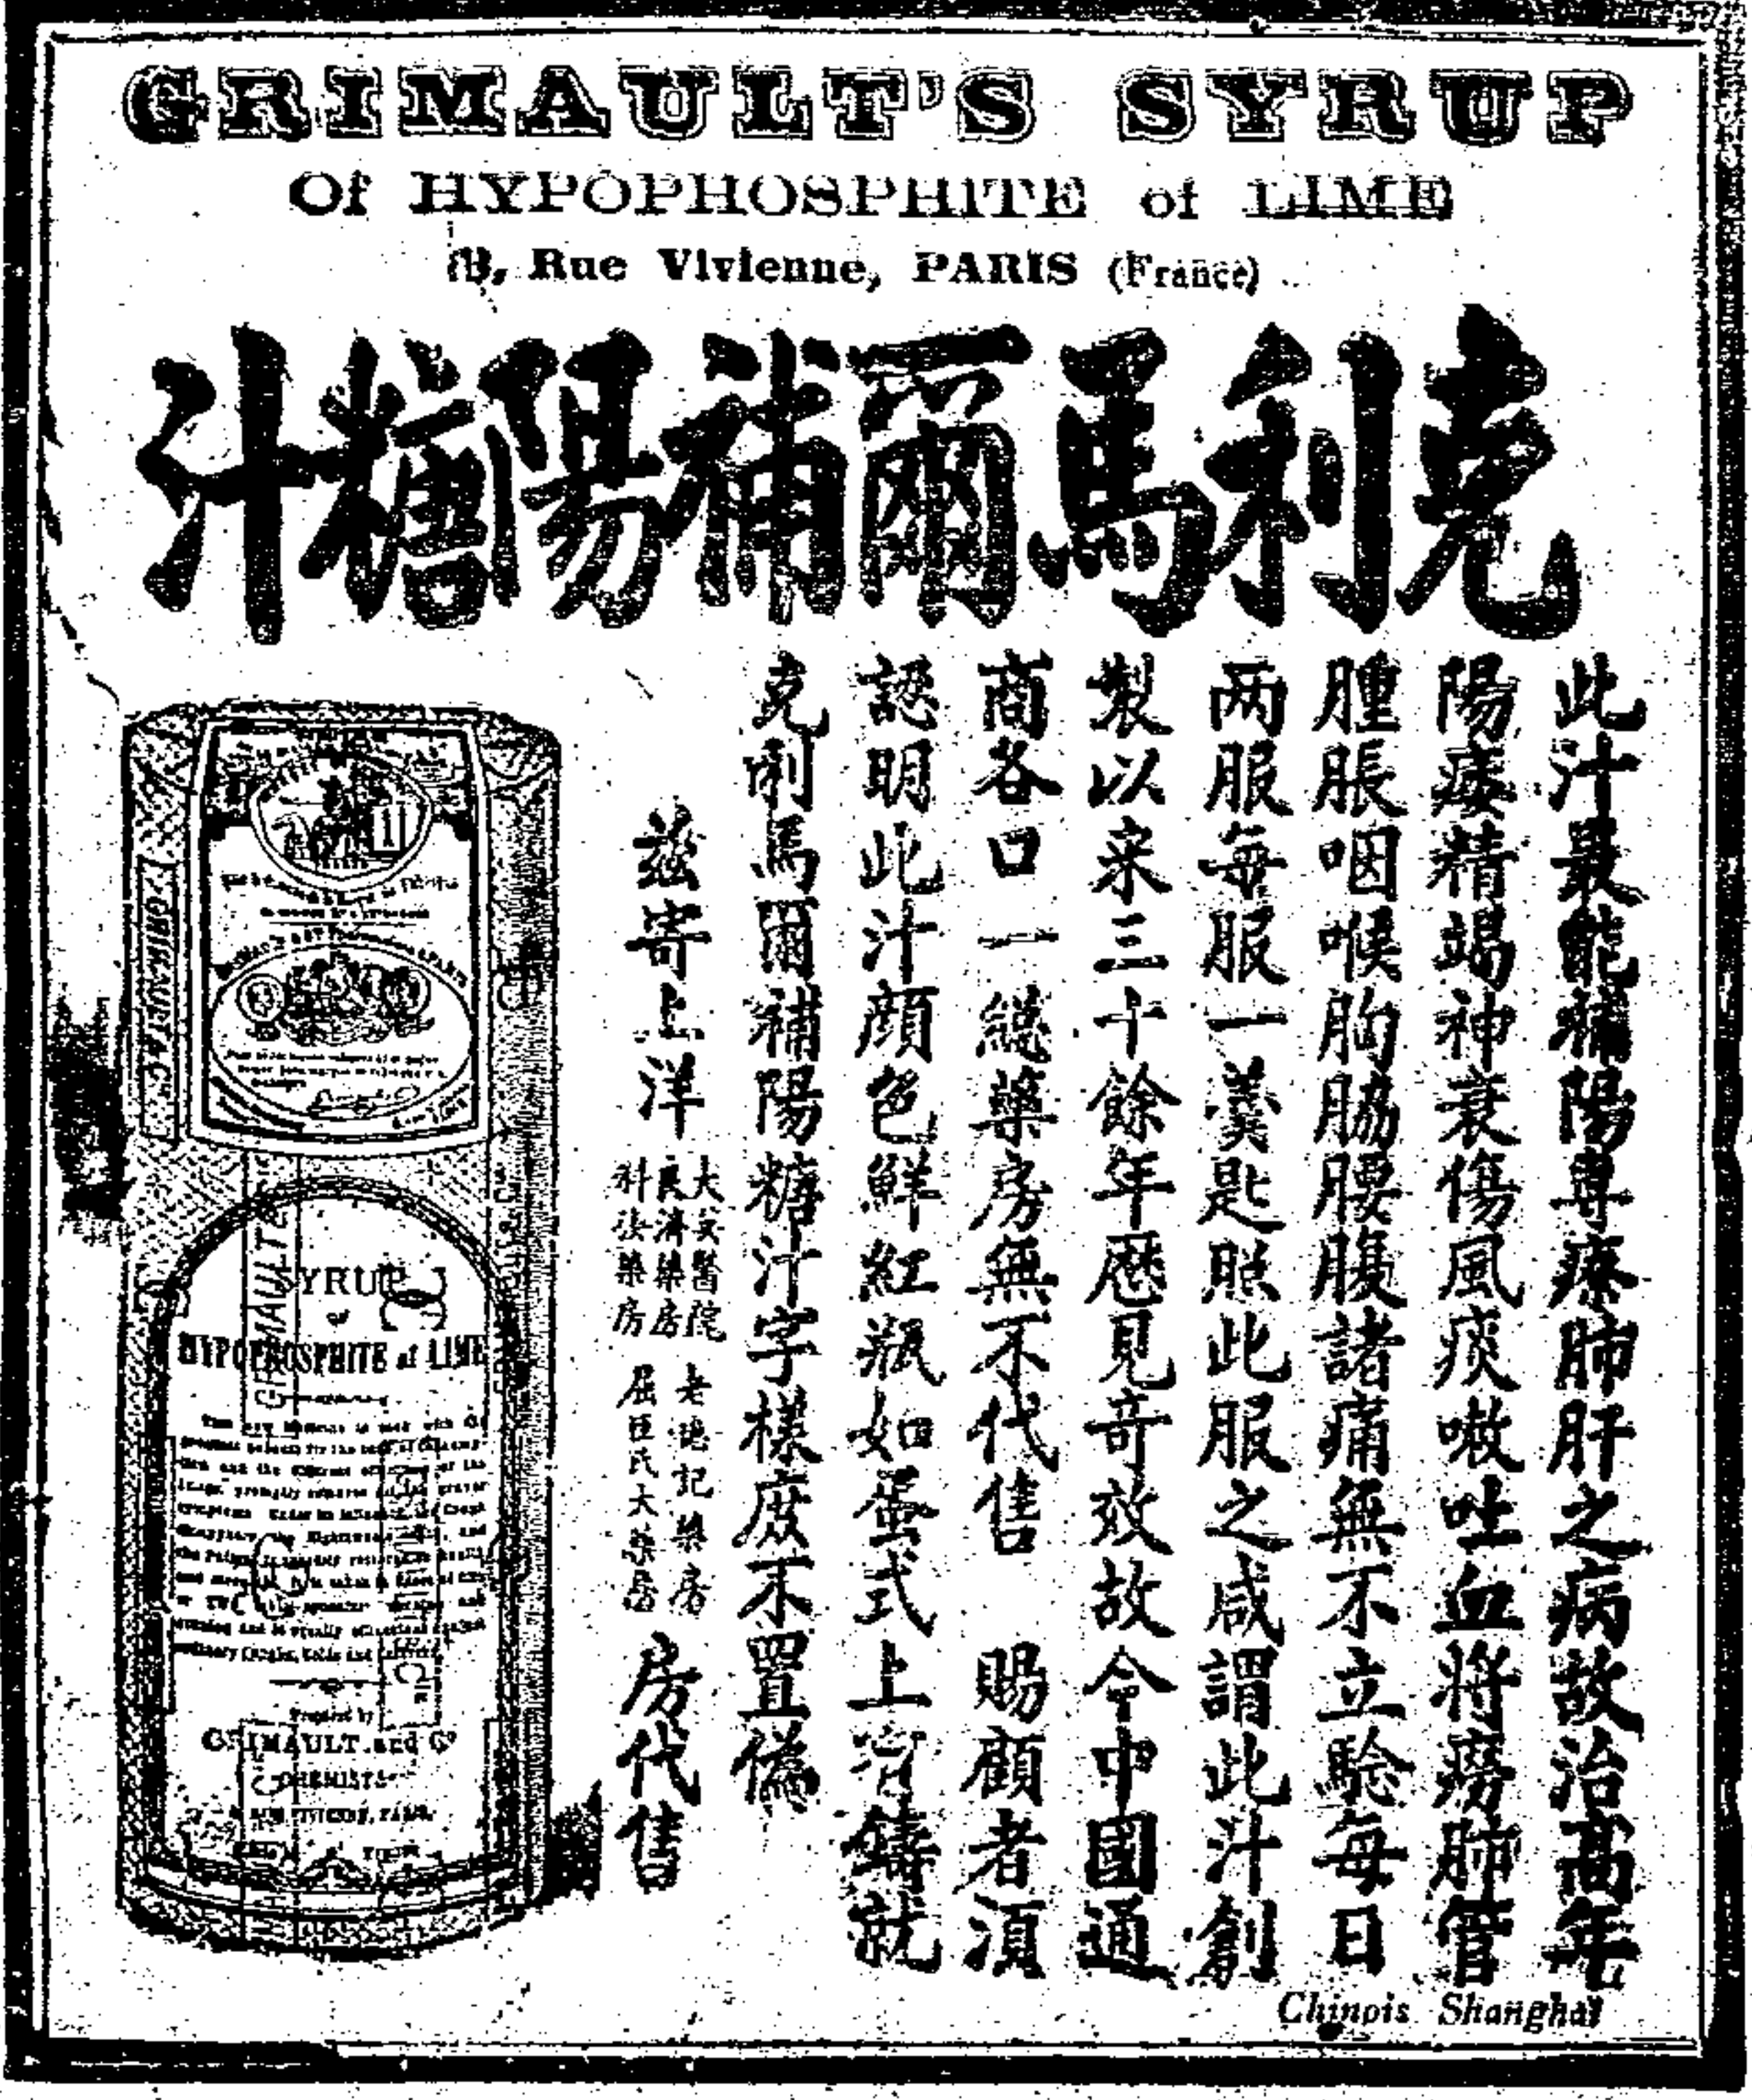 GRIMAULT'S SYRUP
Of HYPOPHOSPHITE of LIME
Rue Vivienne, PARIS (France)
克利馬爾補陽糖汁
此汁最能補陽專療肺肝之病故治高年
陽痿精竭神衰傷風痰嗽吐血將癆肺管
腫脹咽喉胸脇腰腹諸痛無不立驗每日
两服每服一羹匙照此服之咸謂此汁創
製以來三十餘年歷見奇效故今中國通
商各口一總藥房無不代售 賜顧者須
認明此汁顏色鮮紅瓶如蛋式上有鑄就
克利馬爾補陽糖汁字樣庶不置偽
茲寄上洋
大英醫院
民濟藥房
科法藥房
老德記藥房
屈臣氏大藥房
房代售
GRIMAULT & Co
SYRUP
of
HYPOPHOSPHITE of LIME
Prepared by
GRIMAULT and Co
CHEMISTS
RUE VIVIENNE, PARIS
Chinois Shanghai